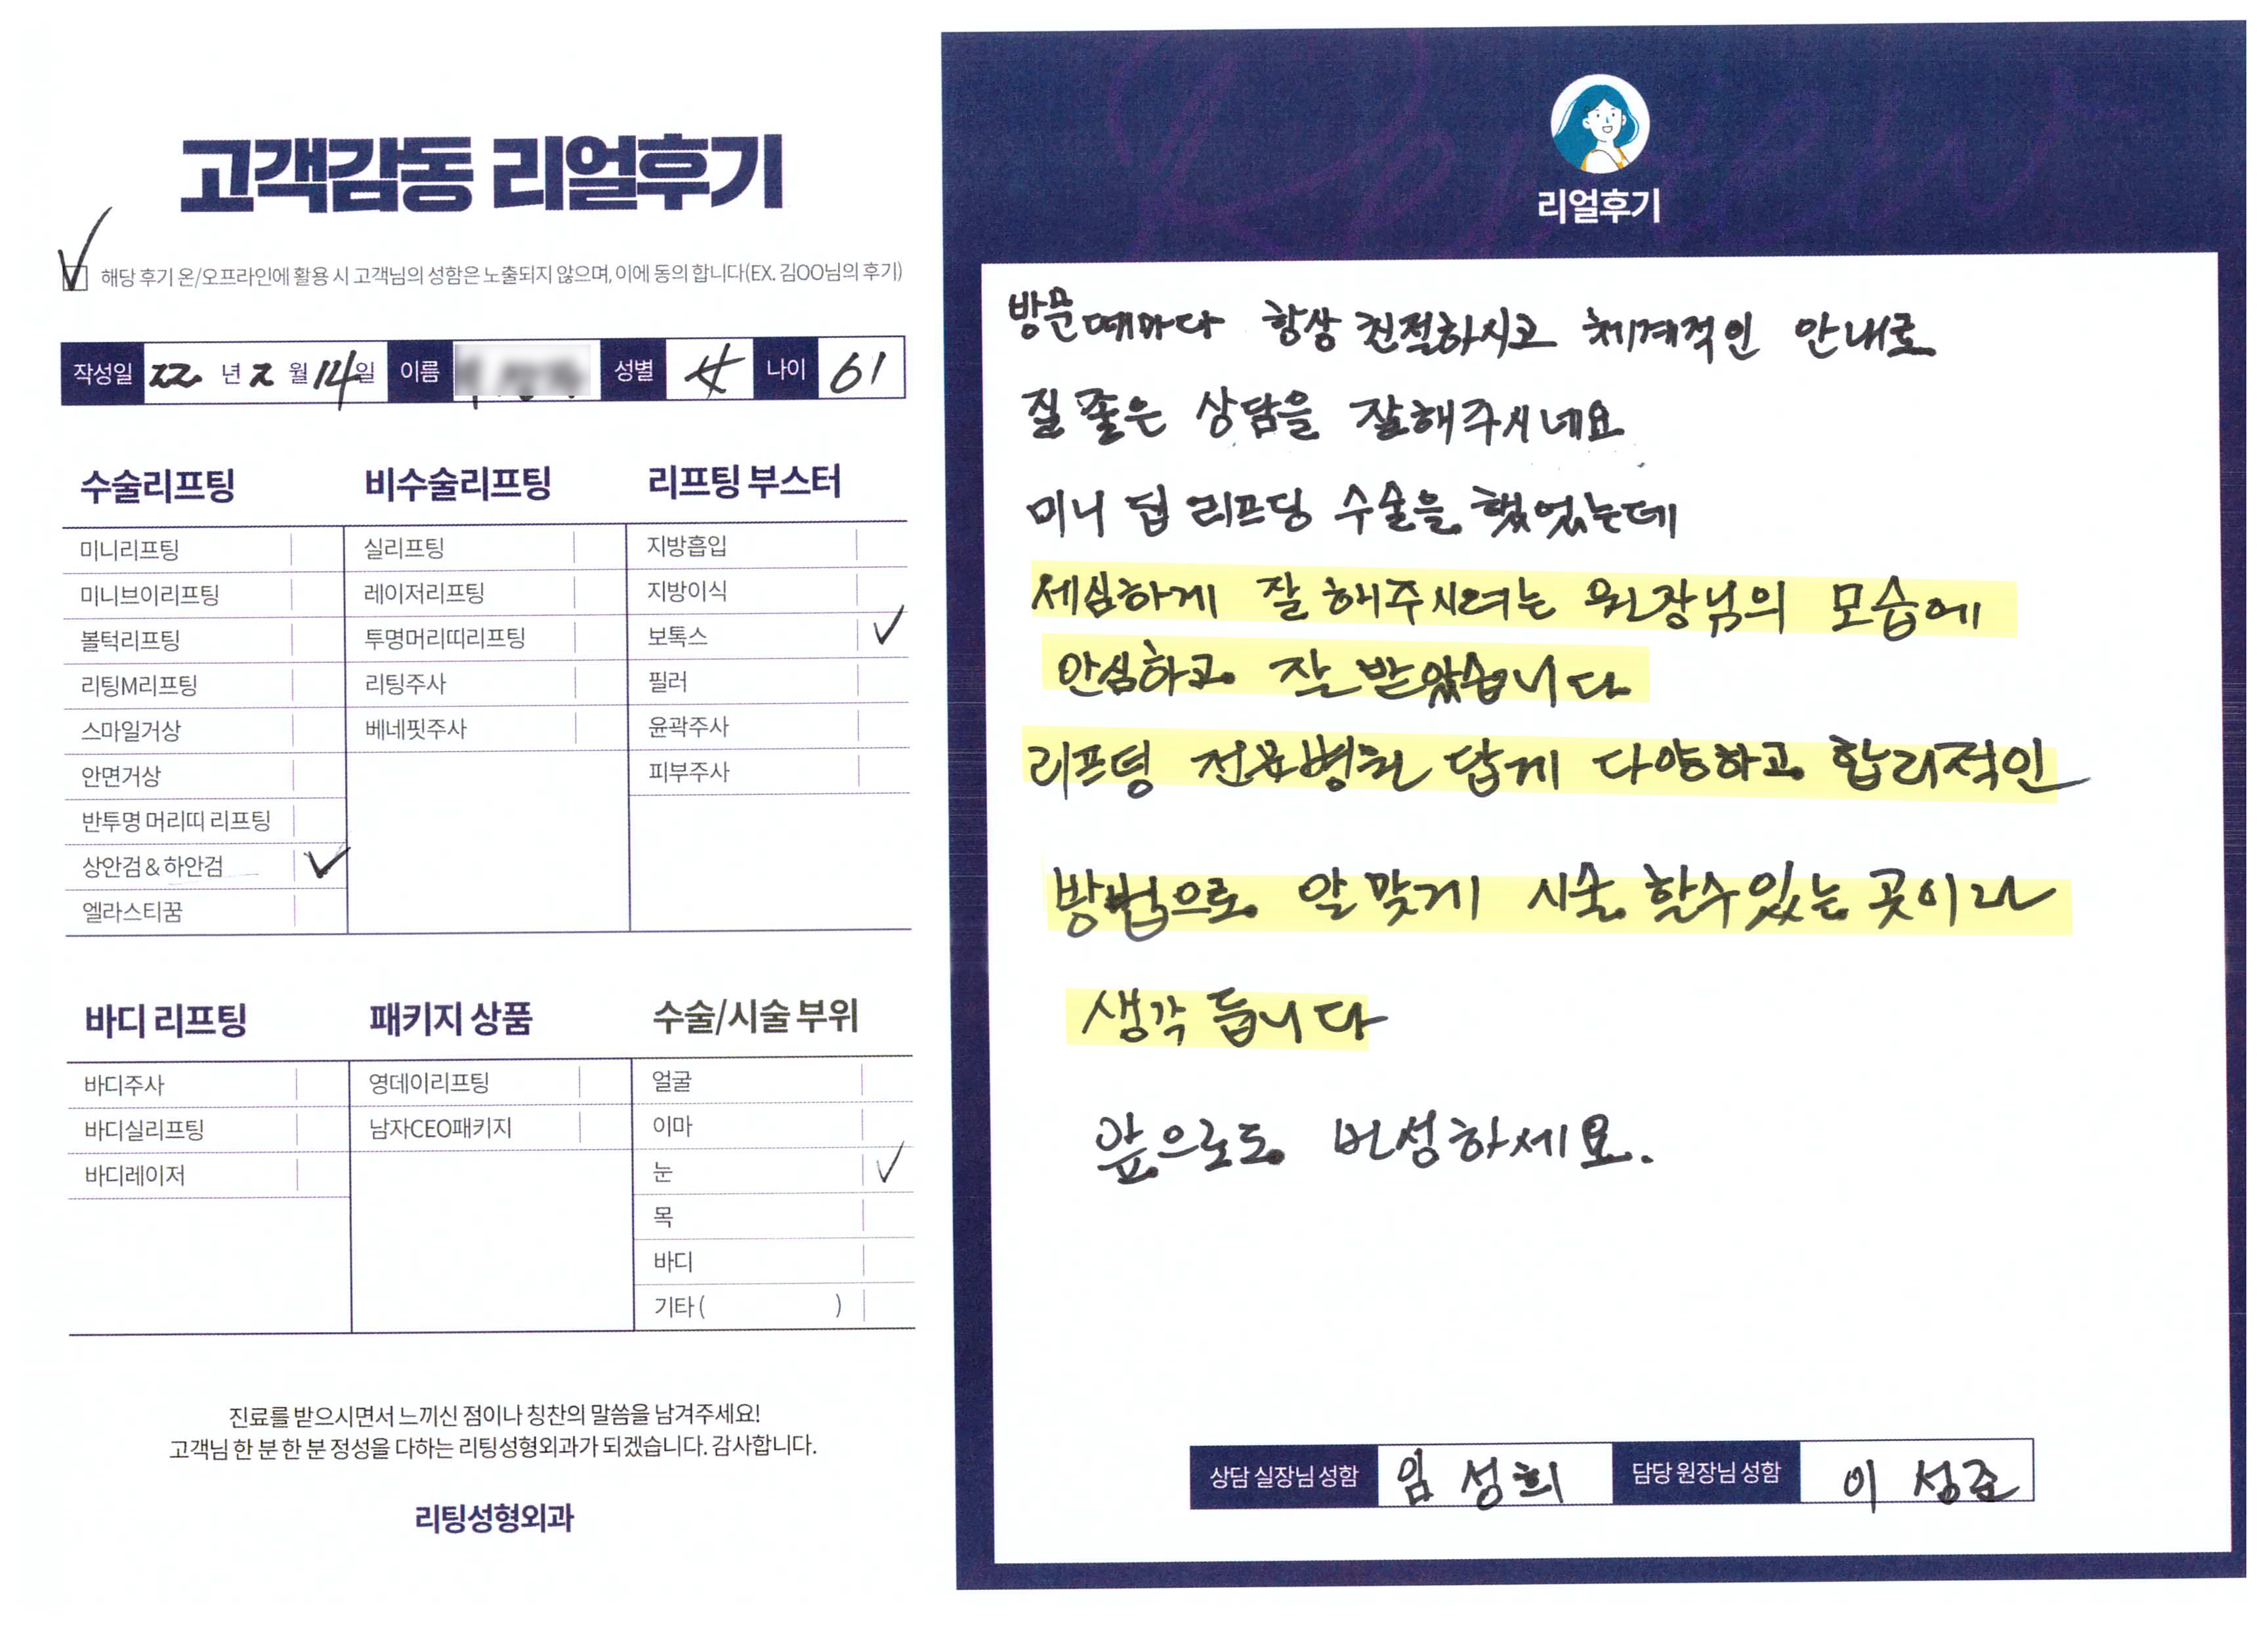 고객감동 리얼후기
해당 후기 온/오프라인에 활용 시 고객님의 성함은 노출되지 않으며, 이에 동의 합니다(EX. 김OO님의 후기)
작성일 22 년 2 월 14 일 이름 성별 女 나이 61
수술리프팅
미니리프팅
미니브이리프팅
볼턱리프팅
리팅M리프팅
스마일거상
안면거상
반투명 머리띠 리프팅
상안검 & 하안검
엘라스티꿈
비수술리프팅
실리프팅
레이저리프팅
투명머리띠리프팅
리팅주사
베네핏주사
리프팅 부스터
지방흡입
지방이식
보톡스
필러
윤곽주사
피부주사
바디 리프팅
바디주사
바디실리프팅
바디레이저
패키지 상품
영데이리프팅
남자CEO패키지
수술/시술 부위
얼굴
이마
눈
목
바디
기타 ( )
진료를 받으시면서 느끼신 점이나 칭찬의 말씀을 남겨주세요!
고객님 한 분 한 분 정성을 다하는 리팅성형외과가 되겠습니다. 감사합니다.
리팅성형외과
Review
리얼후기
방문때마다 항상 친절하시고 체계적인 안내로
질 좋은 상담을 잘해주시네요
미니 딥 리프딩 수술을 했었는데
세심하게 잘 해주시려는 원장님의 모습에
안심하고 잘 받았습니다
리프팅 전문병원 답게 다양하고 합리적인
방법으로 알맞게 시술 할수있는 곳이라
생각 듭니다
앞으로도 번성하세요.
상담 실장님 성함 임성희 담당 원장님 성함 이성준